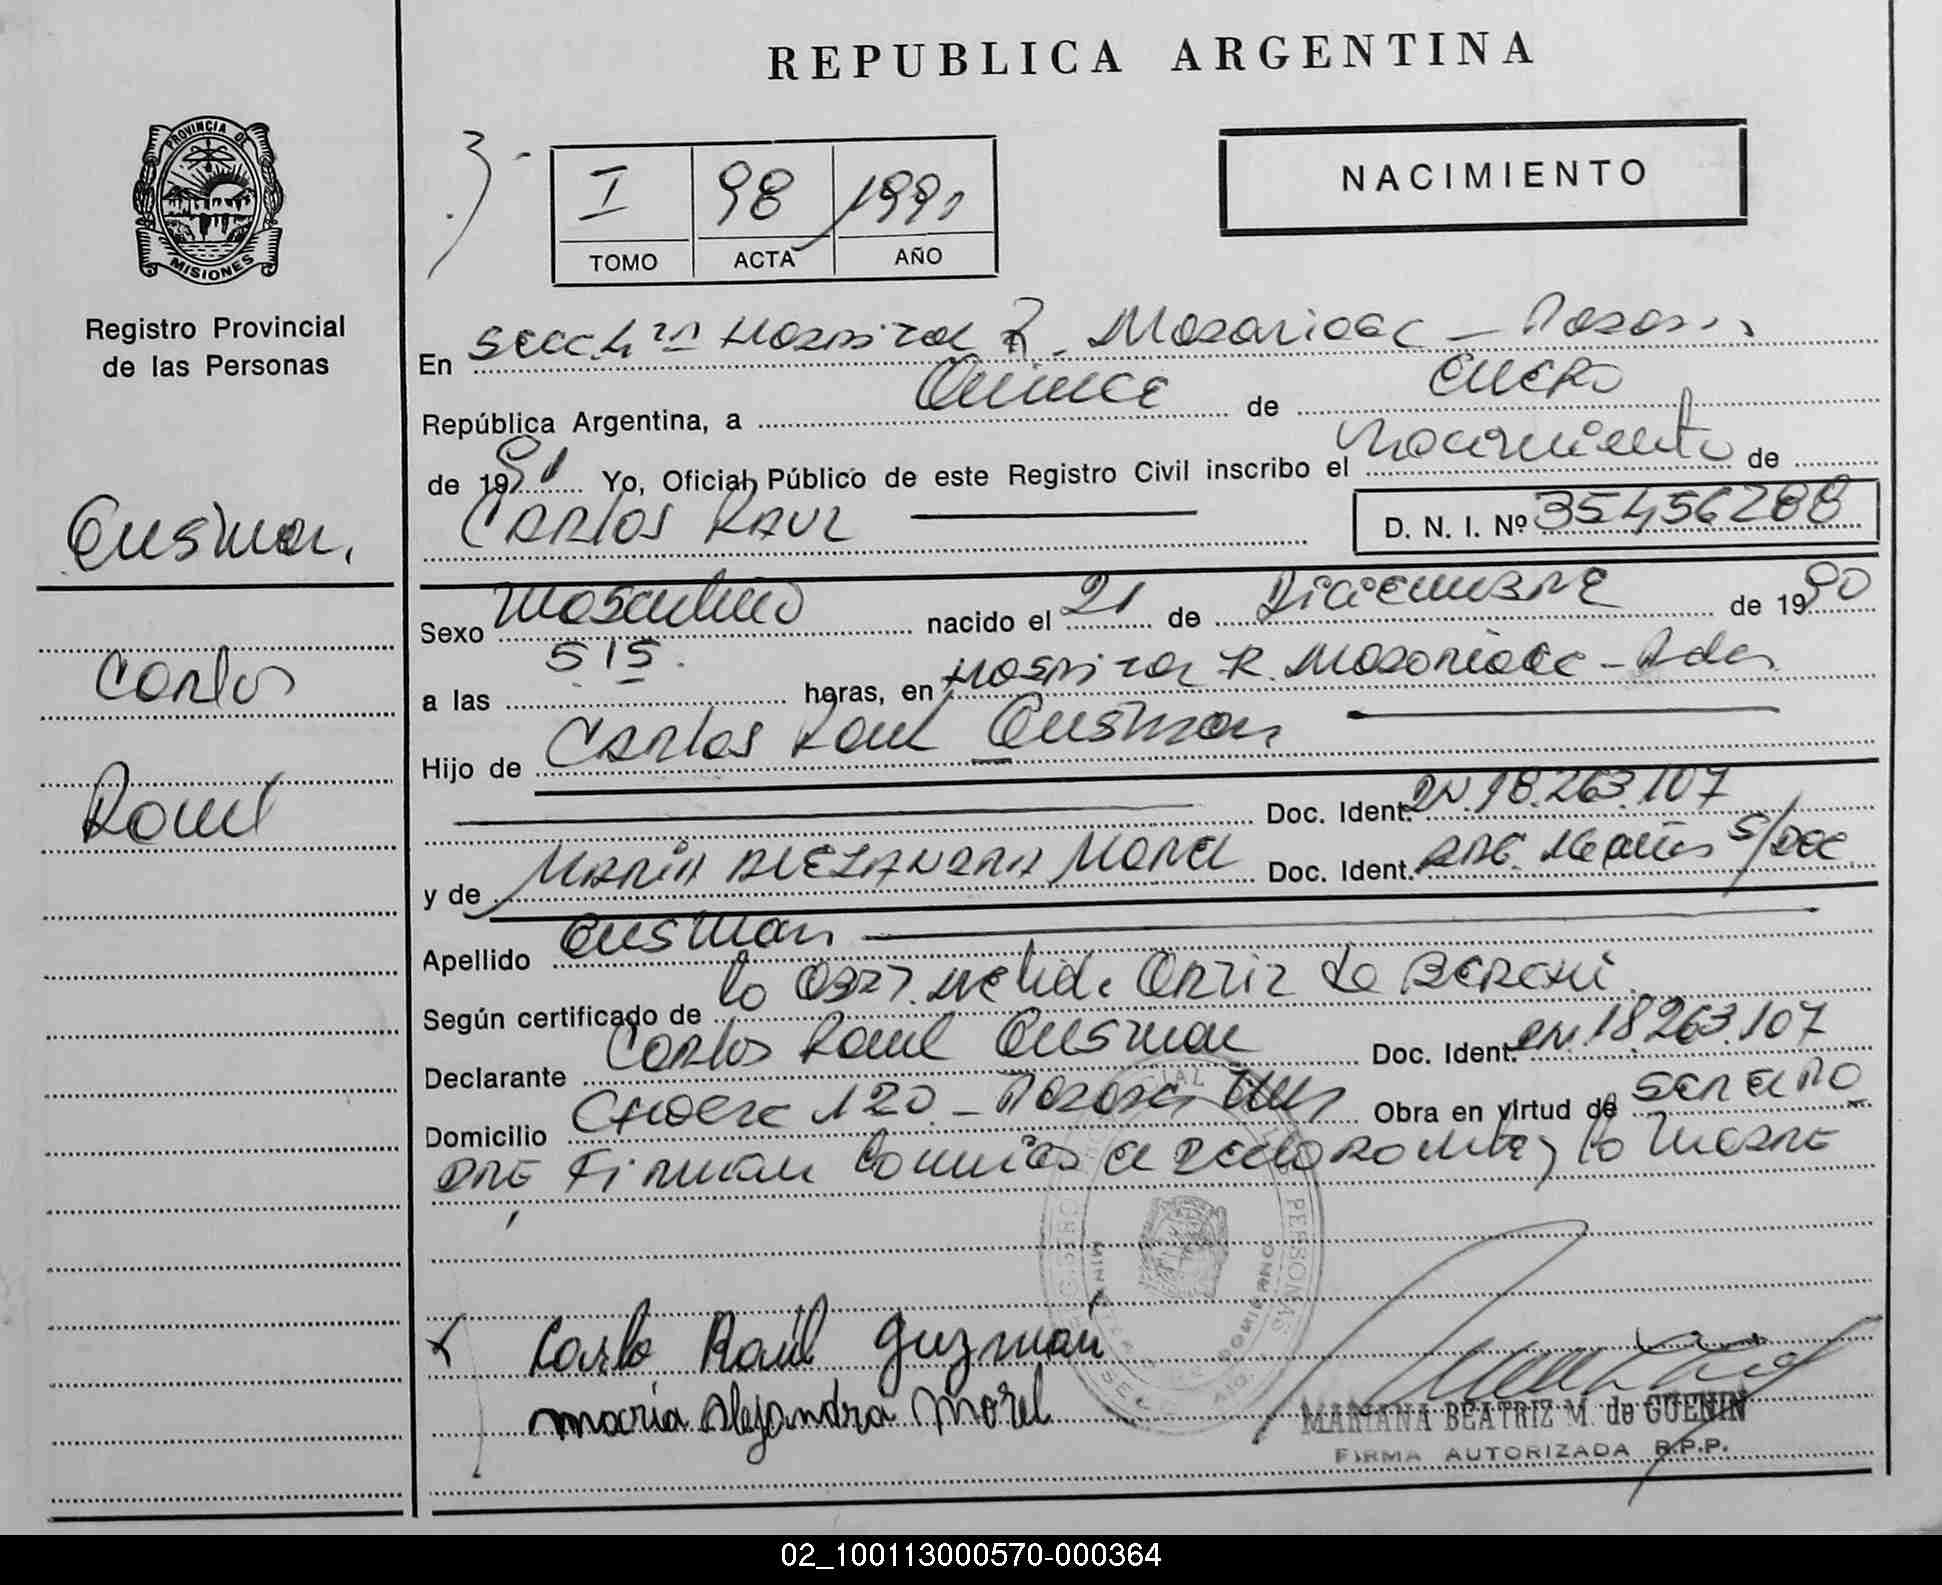 REPUBLICA ARGENTINA
PROVINCIA DE
MISIONES
Registro Provincial
de las Personas
I 98 1991
TOMO ACTA AÑO
NACIMIENTO
En Secc 4ta Hospital R. Madariaga - Posadas
República Argentina, a Quince de Enero
de 1991 Yo, Oficial Público de este Registro Civil inscribo el nacimiento de
Carlos Raul D. N. I. Nº 35456288
Gusman,
Carlos
Raul
Sexo Masculino nacido el 21 de Diciembre de 1990
a las 515. horas, en Hospital R. Madariaga - Pdas
Hijo de Carlos Raul Gusman
Doc. Ident. DN. 18.263.107
y de Maria Alejandra Morel Doc. Ident. ARG. 16 años S/Doc
Apellido Gusman
Según certificado de la Obst. Nelida Ortiz de
Declarante Carlos Raul Gusman Doc. Ident. DN. 18263.107
Domicilio 120 - Posadas Mnes Obra en virtud de ser el pa
dre Firman conmigo el declarante y la madre
Carlo Raúl Guzmán
María Alejandra Morel
MARIANA BEATRIZ M. de GUENIN
FIRMA AUTORIZADA R.P.P.
02_100113000570-000364